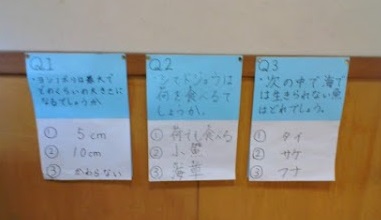 Q1
・ヨシノボリは最大で
どのくらいの大きさに
なるでしょうか。
① 5cm
② 10cm
③ かわらない
Q2
・シマドジョウは
何を食べるで
しょうか。
① 何でも食べる
② 小
③ 海草
Q3
・次の中で海で
は生きられない魚
はどれでしょう。
① タイ
② サケ
③ フナ